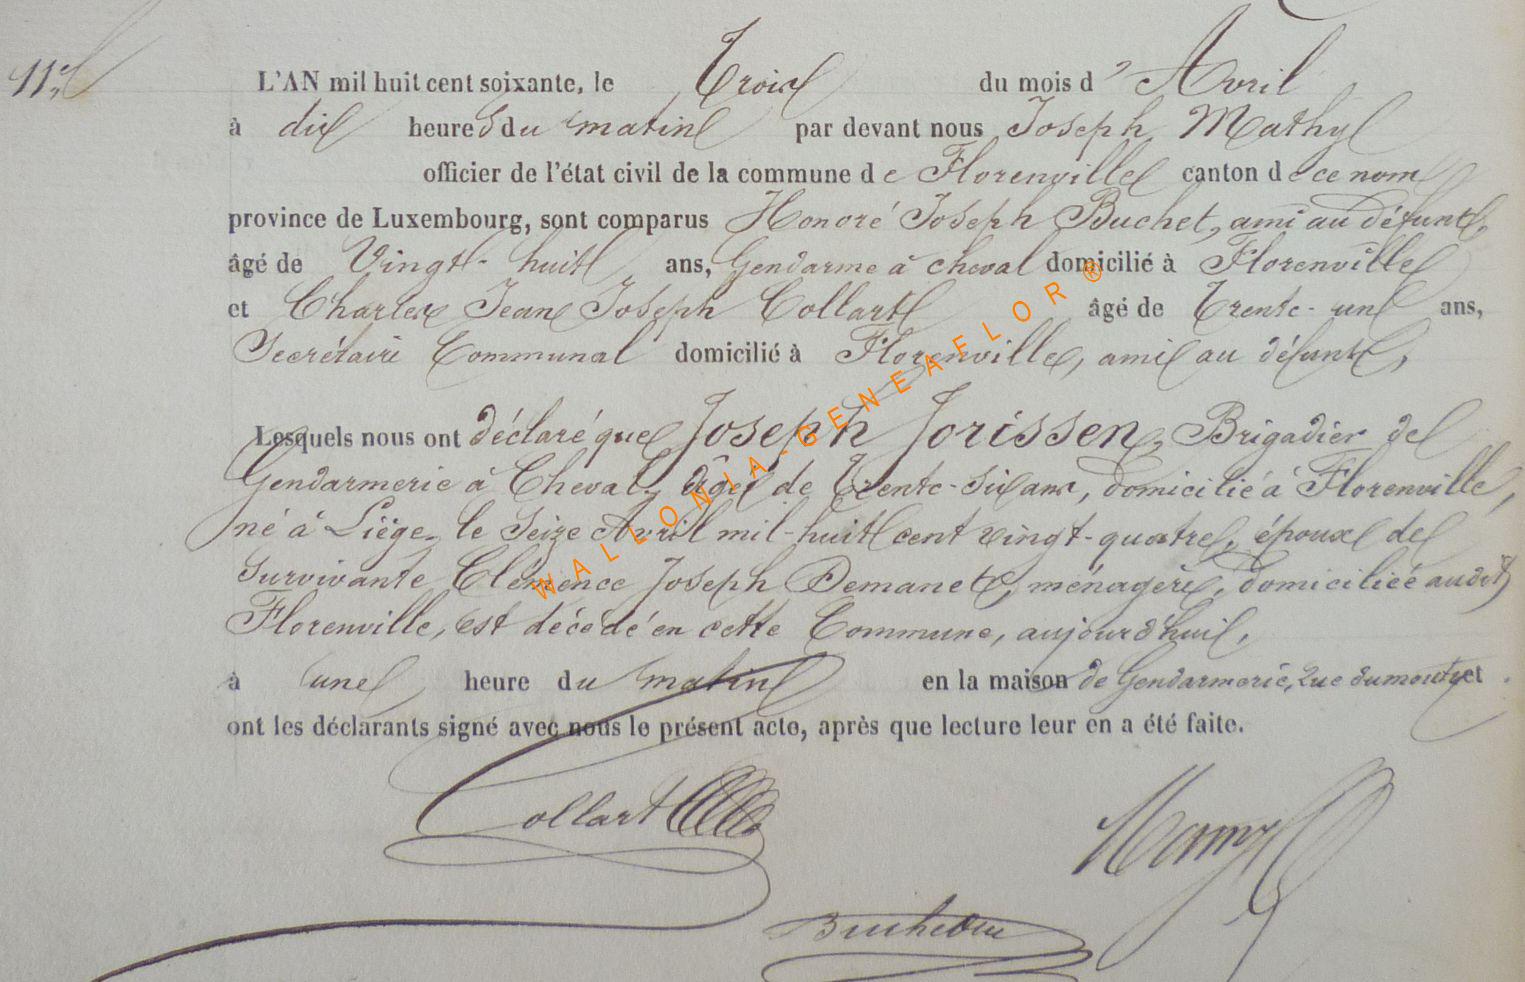 11e
L'AN mil huit cent soixante, le Trois du mois d'Avril
à dix heures du matin par devant nous Joseph Mathy
officier de l'état civil de la commune de Florenville canton de ce nom
province de Luxembourg, sont comparus Honoré Joseph Buchet, ami au défunt,
âgé de Vingt-huit ans, Gendarme à cheval domicilié à Florenville
et Charles Jean Joseph Collart âgé de Trente-un ans,
Secrétaire Communal domicilié à Florenville, ami au défunt,
Lesquels nous ont déclaré que Joseph Jorissen, Brigadier de
Gendarmerie à Cheval, âgé de Trente-six ans, domicilié à Florenville,
né à Liège, le Seize Avril mil-huit cent vingt-quatre, époux de
Survivante Clémence Joseph Demanet, ménagère, domiciliée audit
Florenville, est décédé en cette Commune, aujourd'hui,
à une heure du matin en la maison de Gendarmerie, rue du et
ont les déclarants signé avec nous le présent acte, après que lecture leur en a été faite.
Collart
WALLONIA-GENEAFLOR®